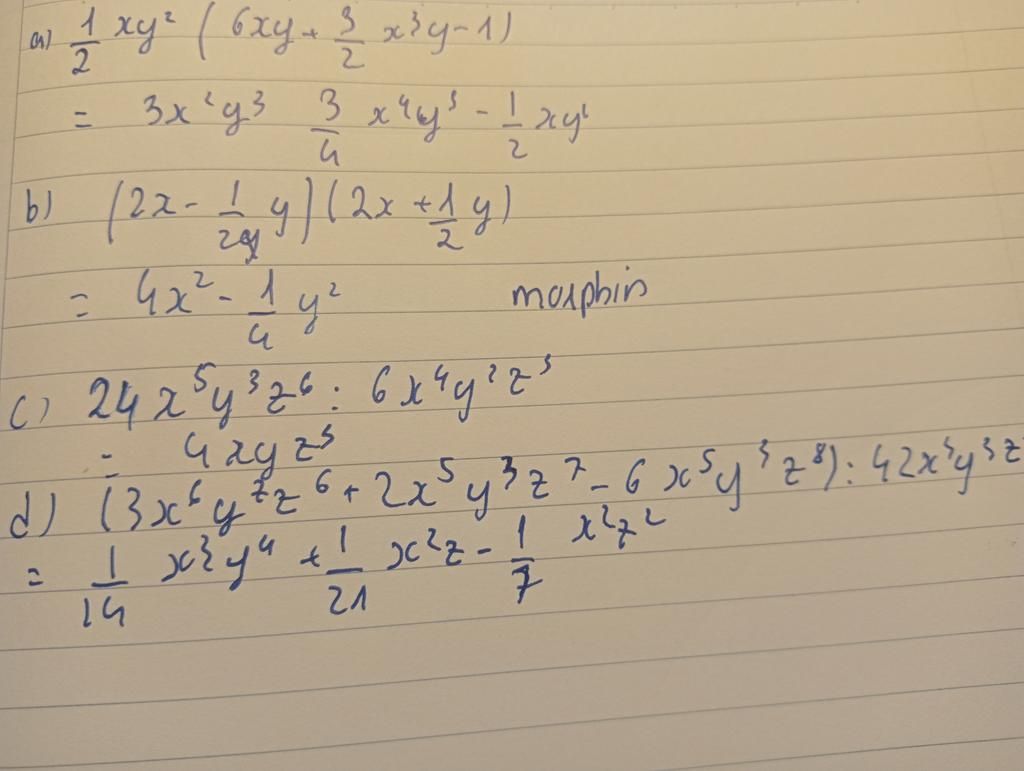 a) 1/2 xy² (6xy + 3/2 x³y - 1)
= 3x²y³ 3/4 x⁴y³ - 1/2 xy²
b) (2x - 1/2 y)(2x + 1/2 y)
= 4x² - 1/4 y² morphin
c) 24x⁵y³z⁶ : 6x⁴y²z³
= 4xyz³
d) (3x⁶y⁷z⁶ + 2x⁵y³z⁷ - 6x⁵y³z⁸) : 42x³y³z
= 1/14 x³y⁴ + 1/21 x²z - 1/7 x²z²